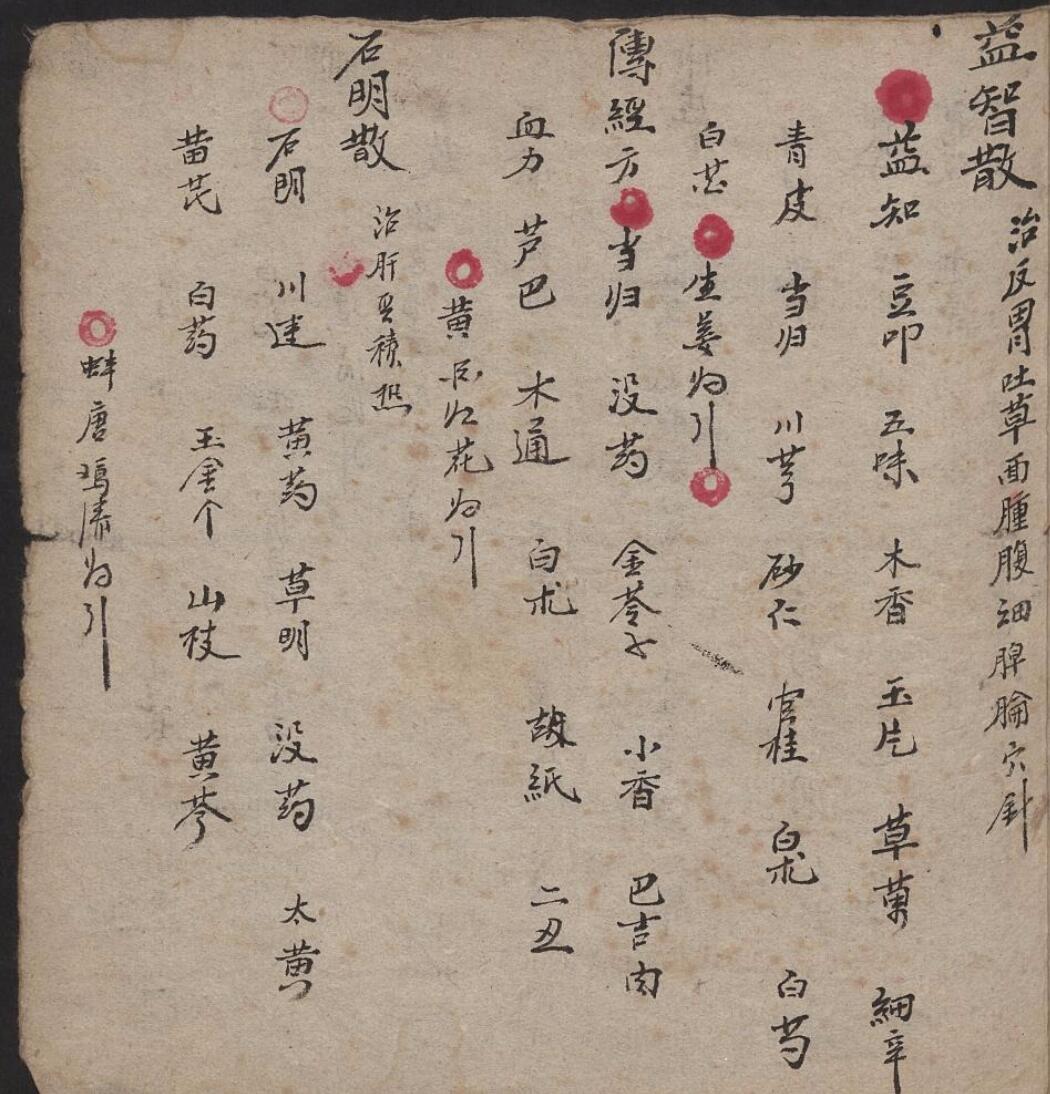 益智散 治反胃吐草面腫腹细脾腧穴針
益知 豆叩 五味 木香 玉片 草菓 細辛
青皮 当归 川芎 砂仁 官桂 白术 白芍
白芷 生姜为引
傳經方 当归 没药 金苓子 小香 巴吉肉
血力 芦巴 木通 白朮 胡紙 二丑
黄 红花为引
石明散 治肝 積热
石明 川连 黄药 草明 没药 太黄
黄芪 白药 玉金个 山枝 黄芩
蚌唐鸡清为引